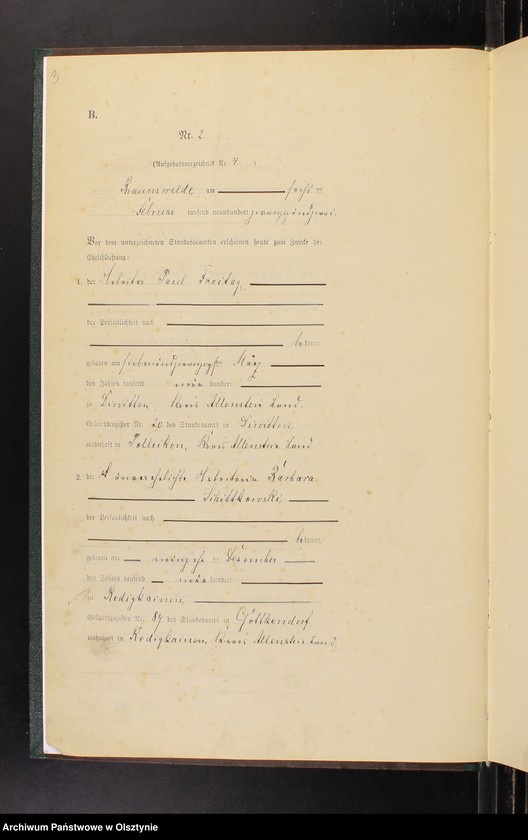 3
B.
Nr. 2
(Aufgebotsverzeichnis Nr. 4 )
Braunswalde am
Februar tausend neunhundert zweiundzwanzig.
Vor dem unterzeichneten Standesbeamten erschienen heute zum Zwecke der
Eheschließung:
1. der Arbeiter Paul Freitag,
der Persönlichkeit nach
bekannt,
geboren am siebenundzwanzigsten März
des Jahres tausend neun hundert
zu Diwitten, Kreis Allenstein Land.
Geburtsregister Nr. 20 des Standesamts in Diwitten,
wohnhaft in Polleiken, Kreis Allenstein Land
2. die unverehelichte Arbeiterin Barbara
der Persönlichkeit nach
bekannt,
geboren am Dezember
des Jahres tausend neun hundert
zu Redigkainen,
Geburtsregister Nr. 89 des Standesamts in Göttkendorf
wohnhaft in Redigkainen, Kreis Allenstein Land.
Archiwum Państwowe w Olsztynie